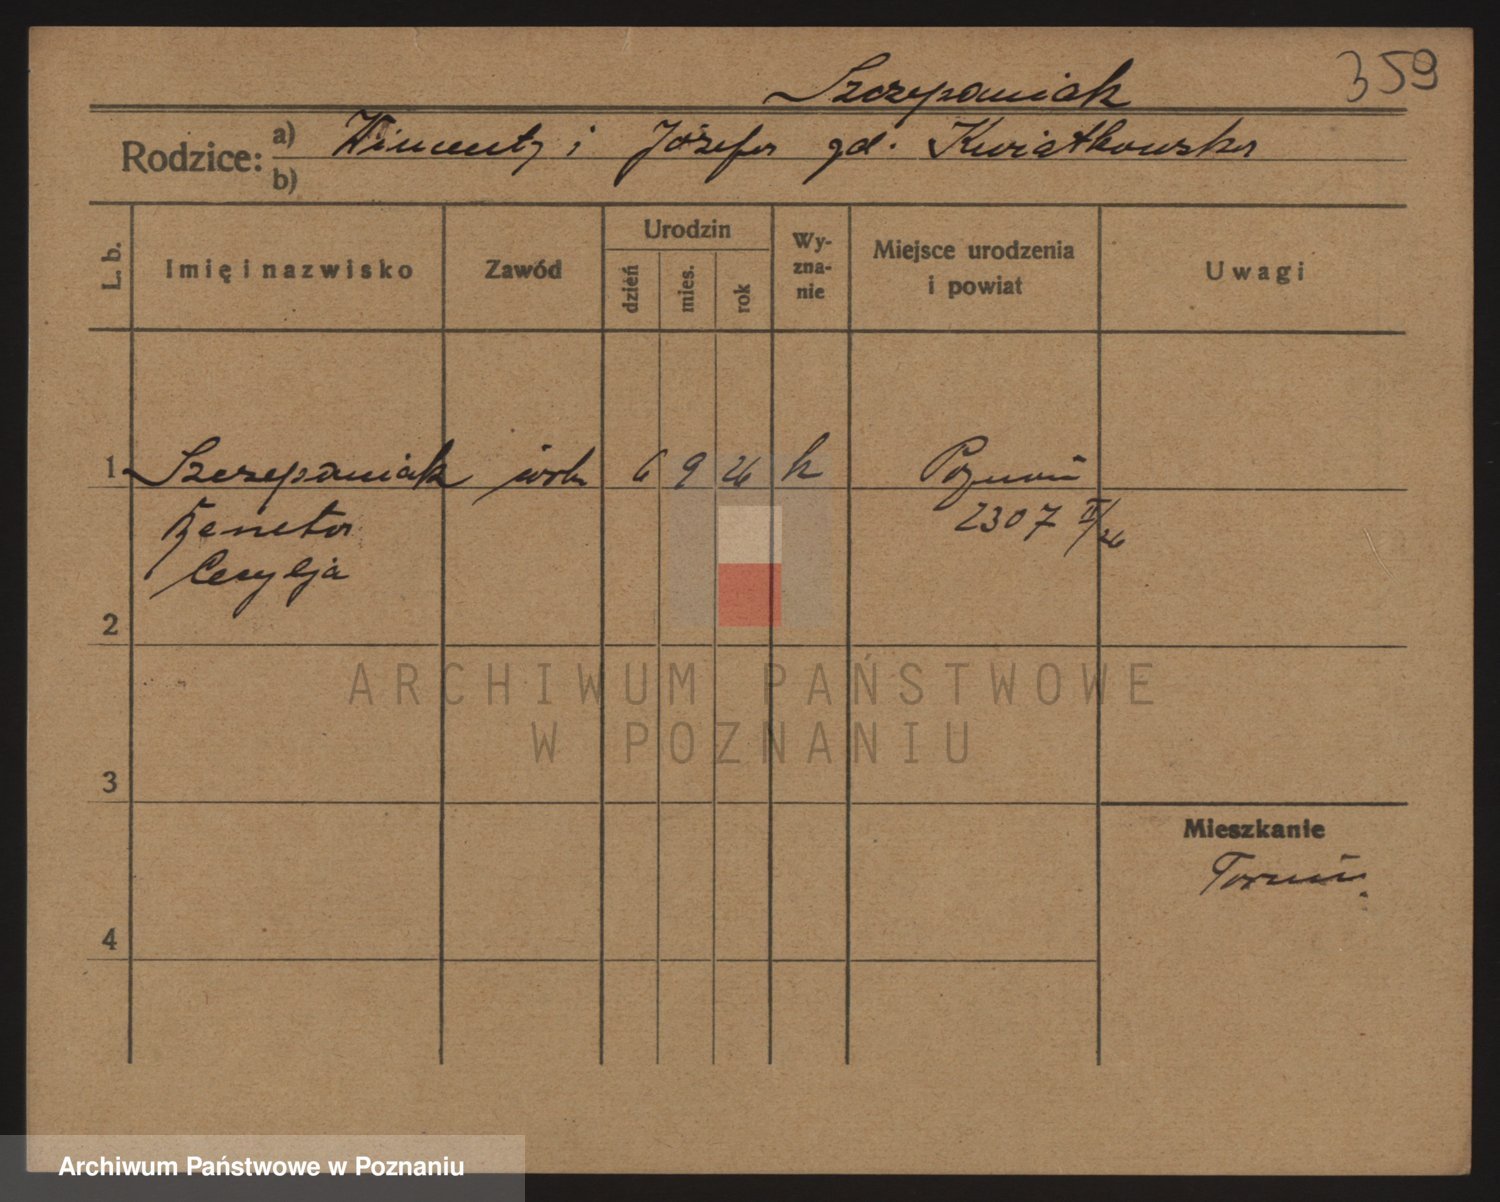 359
Szczepaniak
Rodzice: a) Wincenty i Józefa gd. Kwiatkowska
b)
L. b.
Imię i nazwisko
Zawód
Urodzin
dzień
mies.
rok
Wy-
zna-
nie
Miejsce urodzenia
i powiat
Uwagi
1 Szczepaniak 6 9 26 k Poznań
2307 II/26
Cecylja
2
ARCHIWUM PAŃSTWOWE
W POZNANIU
3
Mieszkanie
Toruń
4
Archiwum Państwowe w Poznaniu